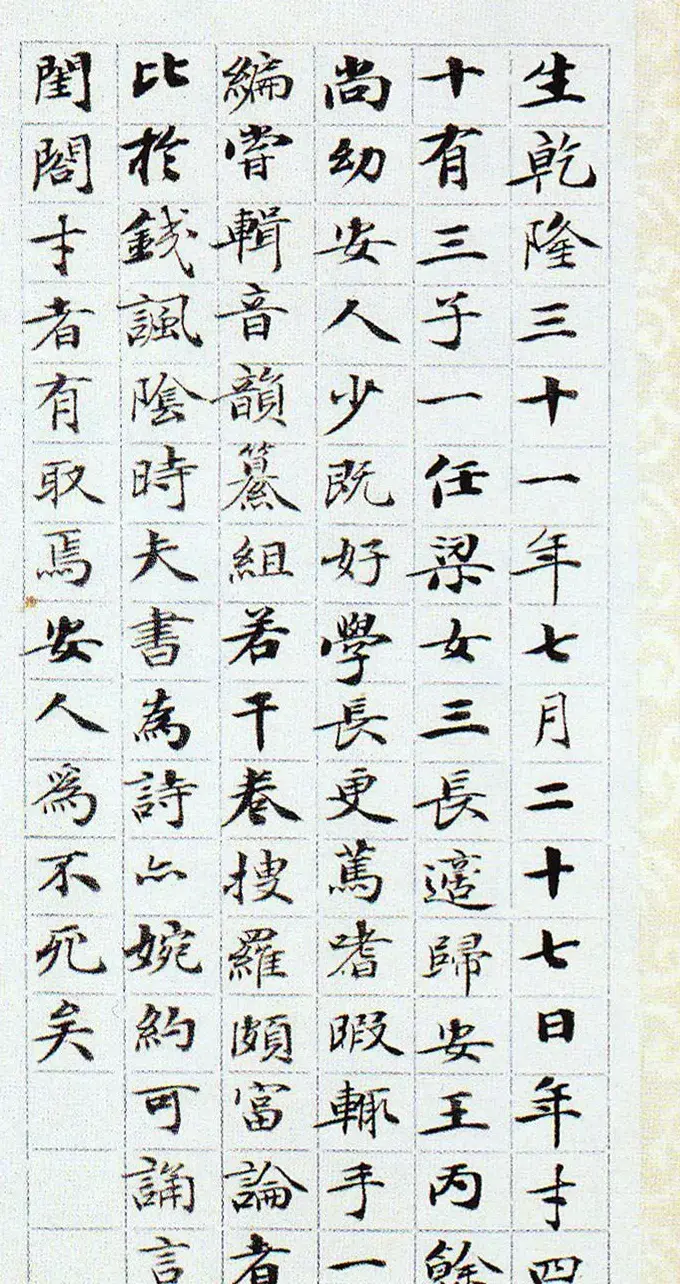 生乾隆三十一年七月二十七日年才四
十有三子一任梁女三長適歸安王丙餘
尚幼安人少既好學長更篤嗜暇輒手一
編嘗輯音韻纂組若干卷搜羅頗富論者
比於錢諷陰時夫書為詩亦婉約可誦言
閨閤才者有取焉安人爲不死矣